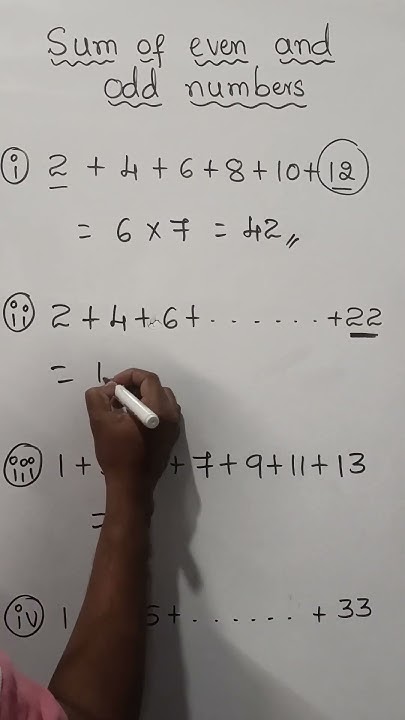 Sum of even and
odd numbers
(i) 2 + 4 + 6 + 8 + 10 + 12
= 6 × 7 = 42 〃
(ii) 2 + 4 + 6 + . . . . . . + 22
= 1
(iii) 1 + + 7 + 9 + 11 + 13
=
(iv) 1 5 + . . . . . . + 33